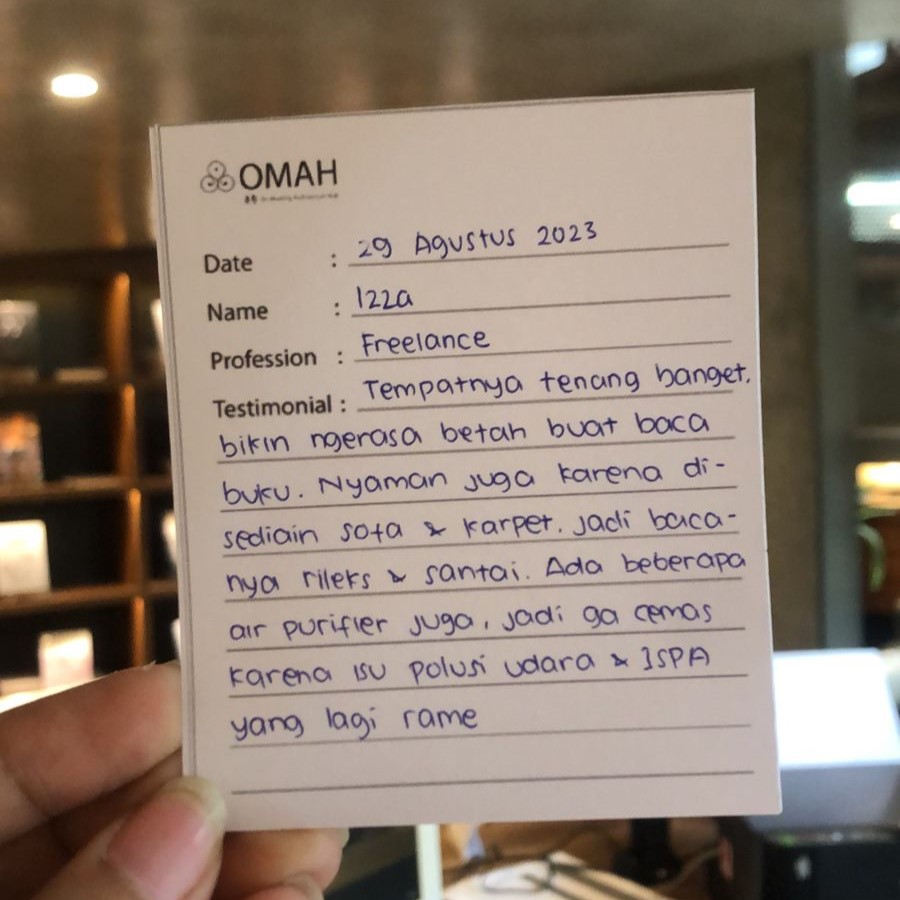 OMAH
Date : 29 Agustus 2023
Name : Izza
Profession : Freelance
Testimonial : Tempatnya tenang banget,
bikin ngerasa betah buat baca
buku. Nyaman juga karena di-
sediain sofa & karpet. Jadi baca-
nya rileks & santai. Ada beberapa
air purifier juga, jadi ga cemas
karena isu polusi udara & ISPA
yang lagi rame